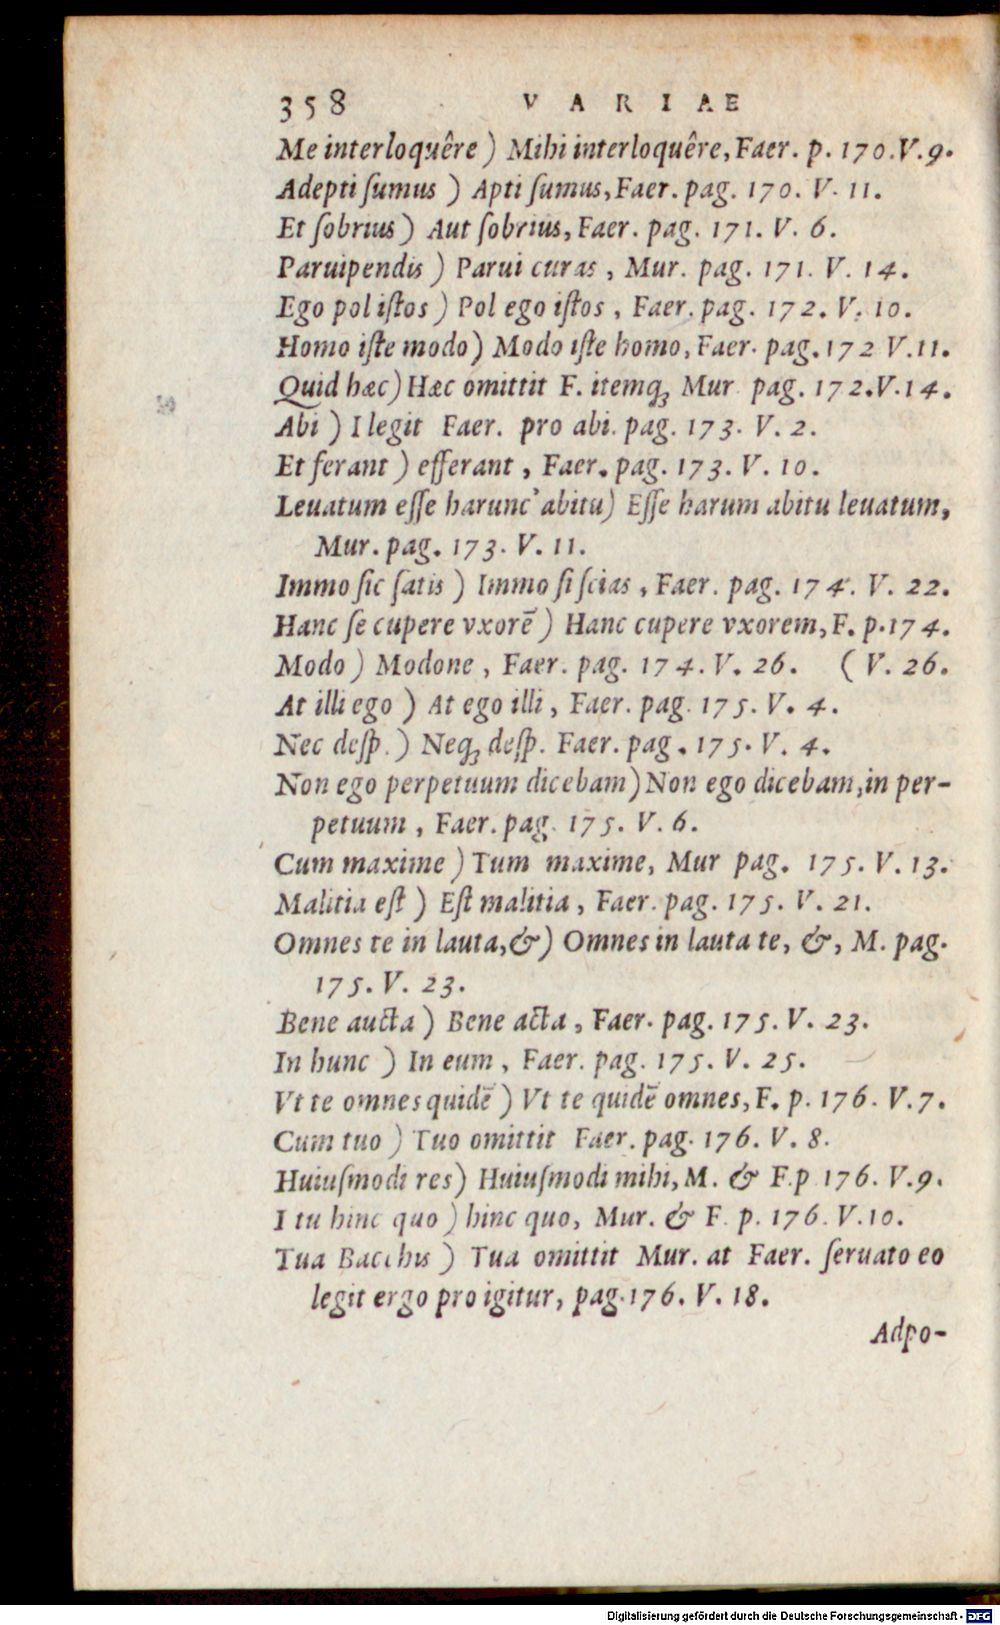 358 VARIAE
Me interloquêre ) Mihi interloquêre, Faer. p. 170. V. 9.
Adepti ſumus ) Apti ſumus, Faer. pag. 170. V. 11.
Et ſobrius ) Aut ſobrius, Faer. pag. 171. V. 6.
Paruipendis ) Parui curas , Mur. pag. 171. V. 14.
Ego pol iſtos ) Pol ego iſtos , Faer. pag. 172. V. 10.
Homo iſte modo ) Modo iſte homo, Faer. pag. 172 V. 11.
Quid hæc ) Hæc omittit F. itemq́ꝫ Mur pag. 172. V. 14.
Abi ) I legit Faer. pro abi. pag. 173. V. 2.
Et ferant ) efferant , Faer. pag. 173. V. 10.
Leuatum eſſe harunc' abitu ) Eſſe harum abitu leuatum,
Mur. pag. 173. V. 11.
Immo ſic ſatis ) Immo ſi ſcias , Faer. pag. 174. V. 22.
Hanc ſe cupere vxorē ) Hanc cupere vxorem, F. p. 174.
Modo ) Modone , Faer. pag. 174. V. 26. ( V. 26.
At illi ego ) At ego illi , Faer. pag. 175. V. 4.
Nec deſp. ) Neqꝫ deſp. Faer. pag. 175. V. 4.
Non ego perpetuum dicebam ) Non ego dicebam, in per-
petuum , Faer. pag. 175. V. 6.
Cum maxime ) Tum maxime, Mur pag. 175. V. 13.
Malitia eſt ) Eſt malitia , Faer. pag. 175. V. 21.
Omnes te in lauta, & ) Omnes in lauta te, &, M. pag.
175. V. 23.
Bene aucta ) Bene acta , Faer. pag. 175. V. 23.
In hunc ) In eum , Faer. pag. 175. V. 25.
Vt te omnes quidē ) Vt te quidē omnes, F. p. 176. V. 7.
Cum tuo ) Tuo omittit Faer. pag. 176. V. 8.
Huiuſmodi res ) Huiuſmodi mihi, M. & F. p 176. V. 9.
I tu hinc quo ) hinc quo, Mur. & F. p. 176. V. 10.
Tua Bacchis ) Tua omittit Mur. at Faer. ſeruato eo
legit ergo pro igitur, pag. 176. V. 18.
Adpo-
Digitalisierung gefördert durch die Deutsche Forschungsgemeinschaft - DFG